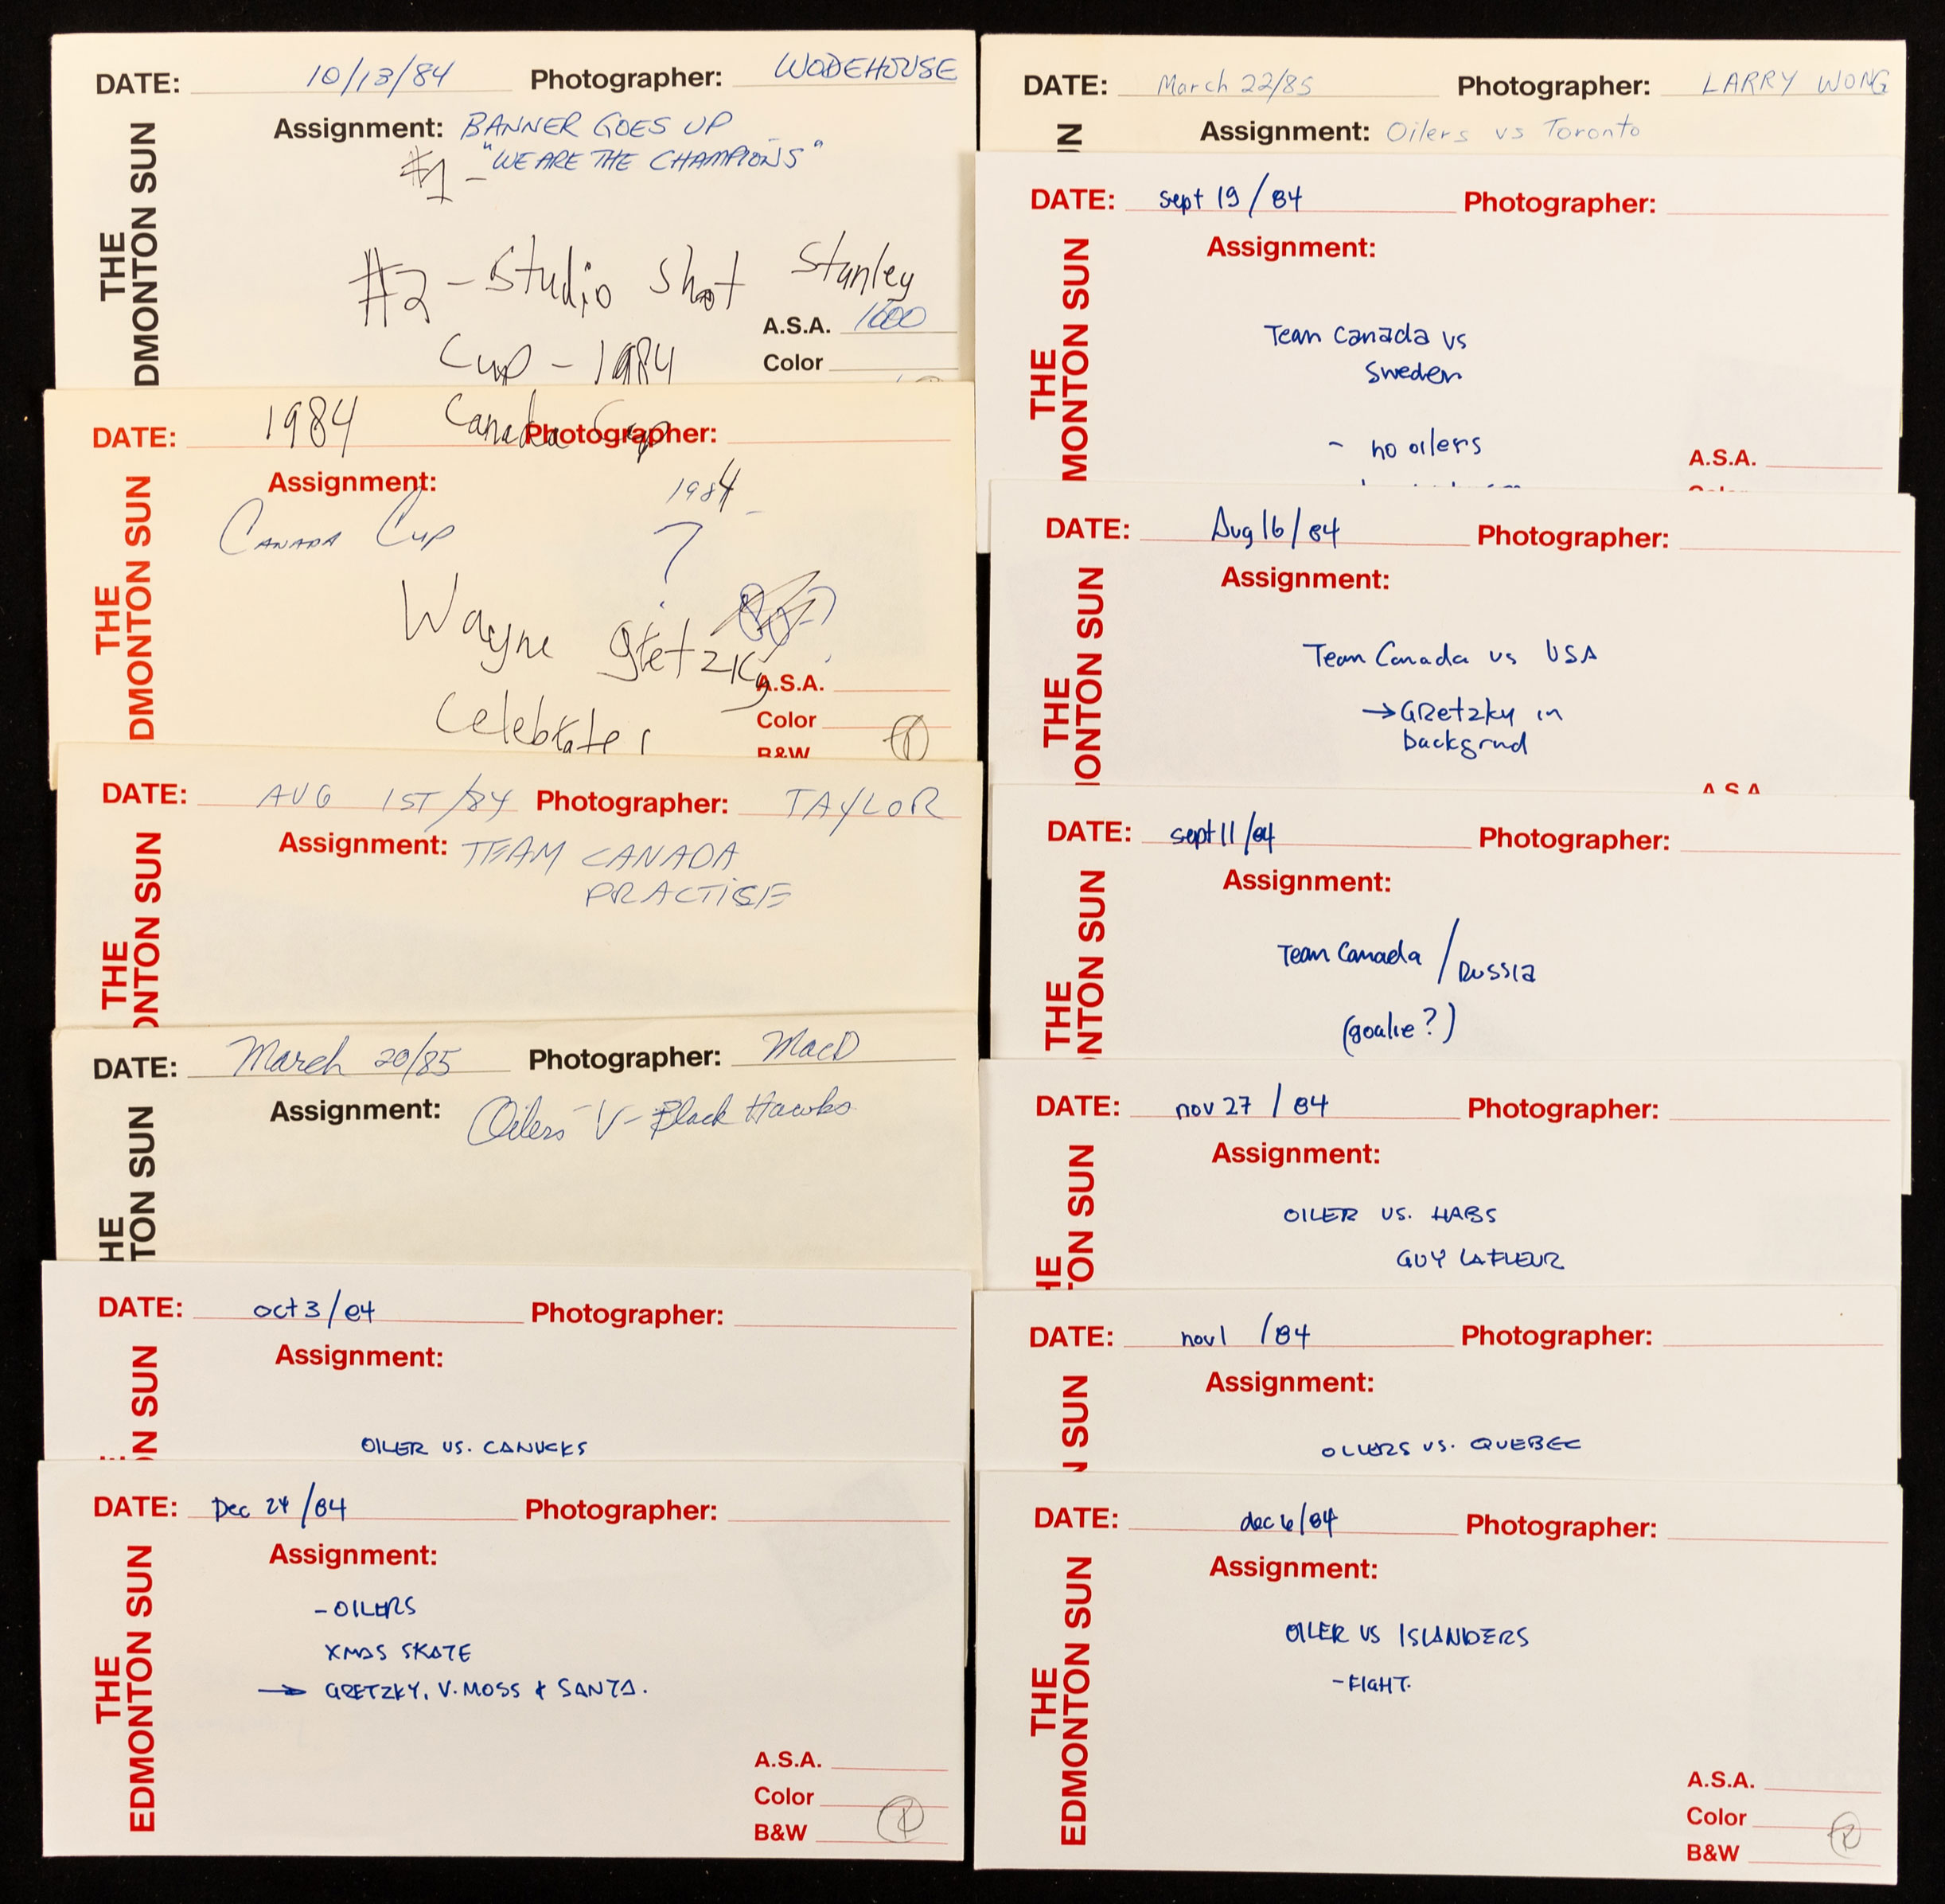 DATE: 10/13/84 Photographer: WODEHOUSE
Assignment: BANNER GOES UP
#1 - "WE ARE THE CHAMPIONS"
#2 - Studio Shot Stanley
Cup - 1984
A.S.A. 1600
Color
THE
DMONTON SUN
DATE: 1984 Canada Cup Photographer:
Assignment:
1984
CANADA CUP
?
Wayne Gretzky
Celebrates
A.S.A.
Color
B&W
THE
DMONTON SUN
DATE: AUG 1ST/84 Photographer: TAYLOR
Assignment: TEAM CANADA
PRACTISE
THE
ONTON SUN
DATE: March 20/85 Photographer: MacD
Assignment: Oilers -V- Black Hawks
HE
TON SUN
DATE: oct 3/84 Photographer:
Assignment:
OILER VS. CANUCKS
N SUN
DATE: Dec 24/84 Photographer:
Assignment:
- OILERS
XMAS SKATE
→ GRETZKY, V. MOSS & SANTA.
THE
EDMONTON SUN
A.S.A.
Color
B&W
DATE: March 22/85 Photographer: LARRY WONG
Assignment: Oilers vs Toronto
N
DATE: sept 19/84 Photographer:
Assignment:
Team Canada vs
Sweden
- no oilers
A.S.A.
THE
MONTON SUN
DATE: Aug 16/84 Photographer:
Assignment:
Team Canada vs USA
→ GRetzky in
backgrnd
A.S.A.
THE
MONTON SUN
DATE: sept 11/84 Photographer:
Assignment:
Team Canada / Russia
(goalie?)
THE
NTON SUN
DATE: nov 27/84 Photographer:
Assignment:
OILER VS. HABS
GUY LAFLEUR
HE
TON SUN
DATE: nov 1/84 Photographer:
Assignment:
OILERS VS. QUEBEC
N SUN
DATE: dec 6/84 Photographer:
Assignment:
OILER VS ISLANDERS
- FIGHT.
THE
EDMONTON SUN
A.S.A.
Color
B&W